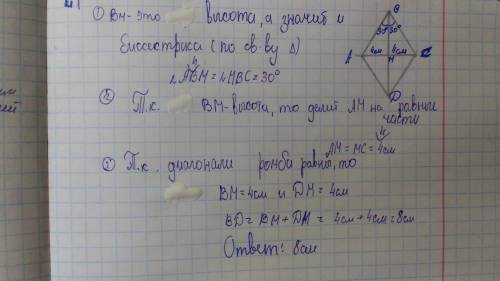 ① BM-это высота, а значит и
биссектриса (по св-ву Δ)
∠ABM=∠MBC=30°
② Т.к. BM-высота, то делит AM на равные
части
AM=MC=4см
③ Т.к. диагонали ромба равны, то
BM=4см и DM=4см
BD=BM+DM=4см+4см=8см
Ответ: 8см
B
30° 30°
A 4см 4см C
M
D